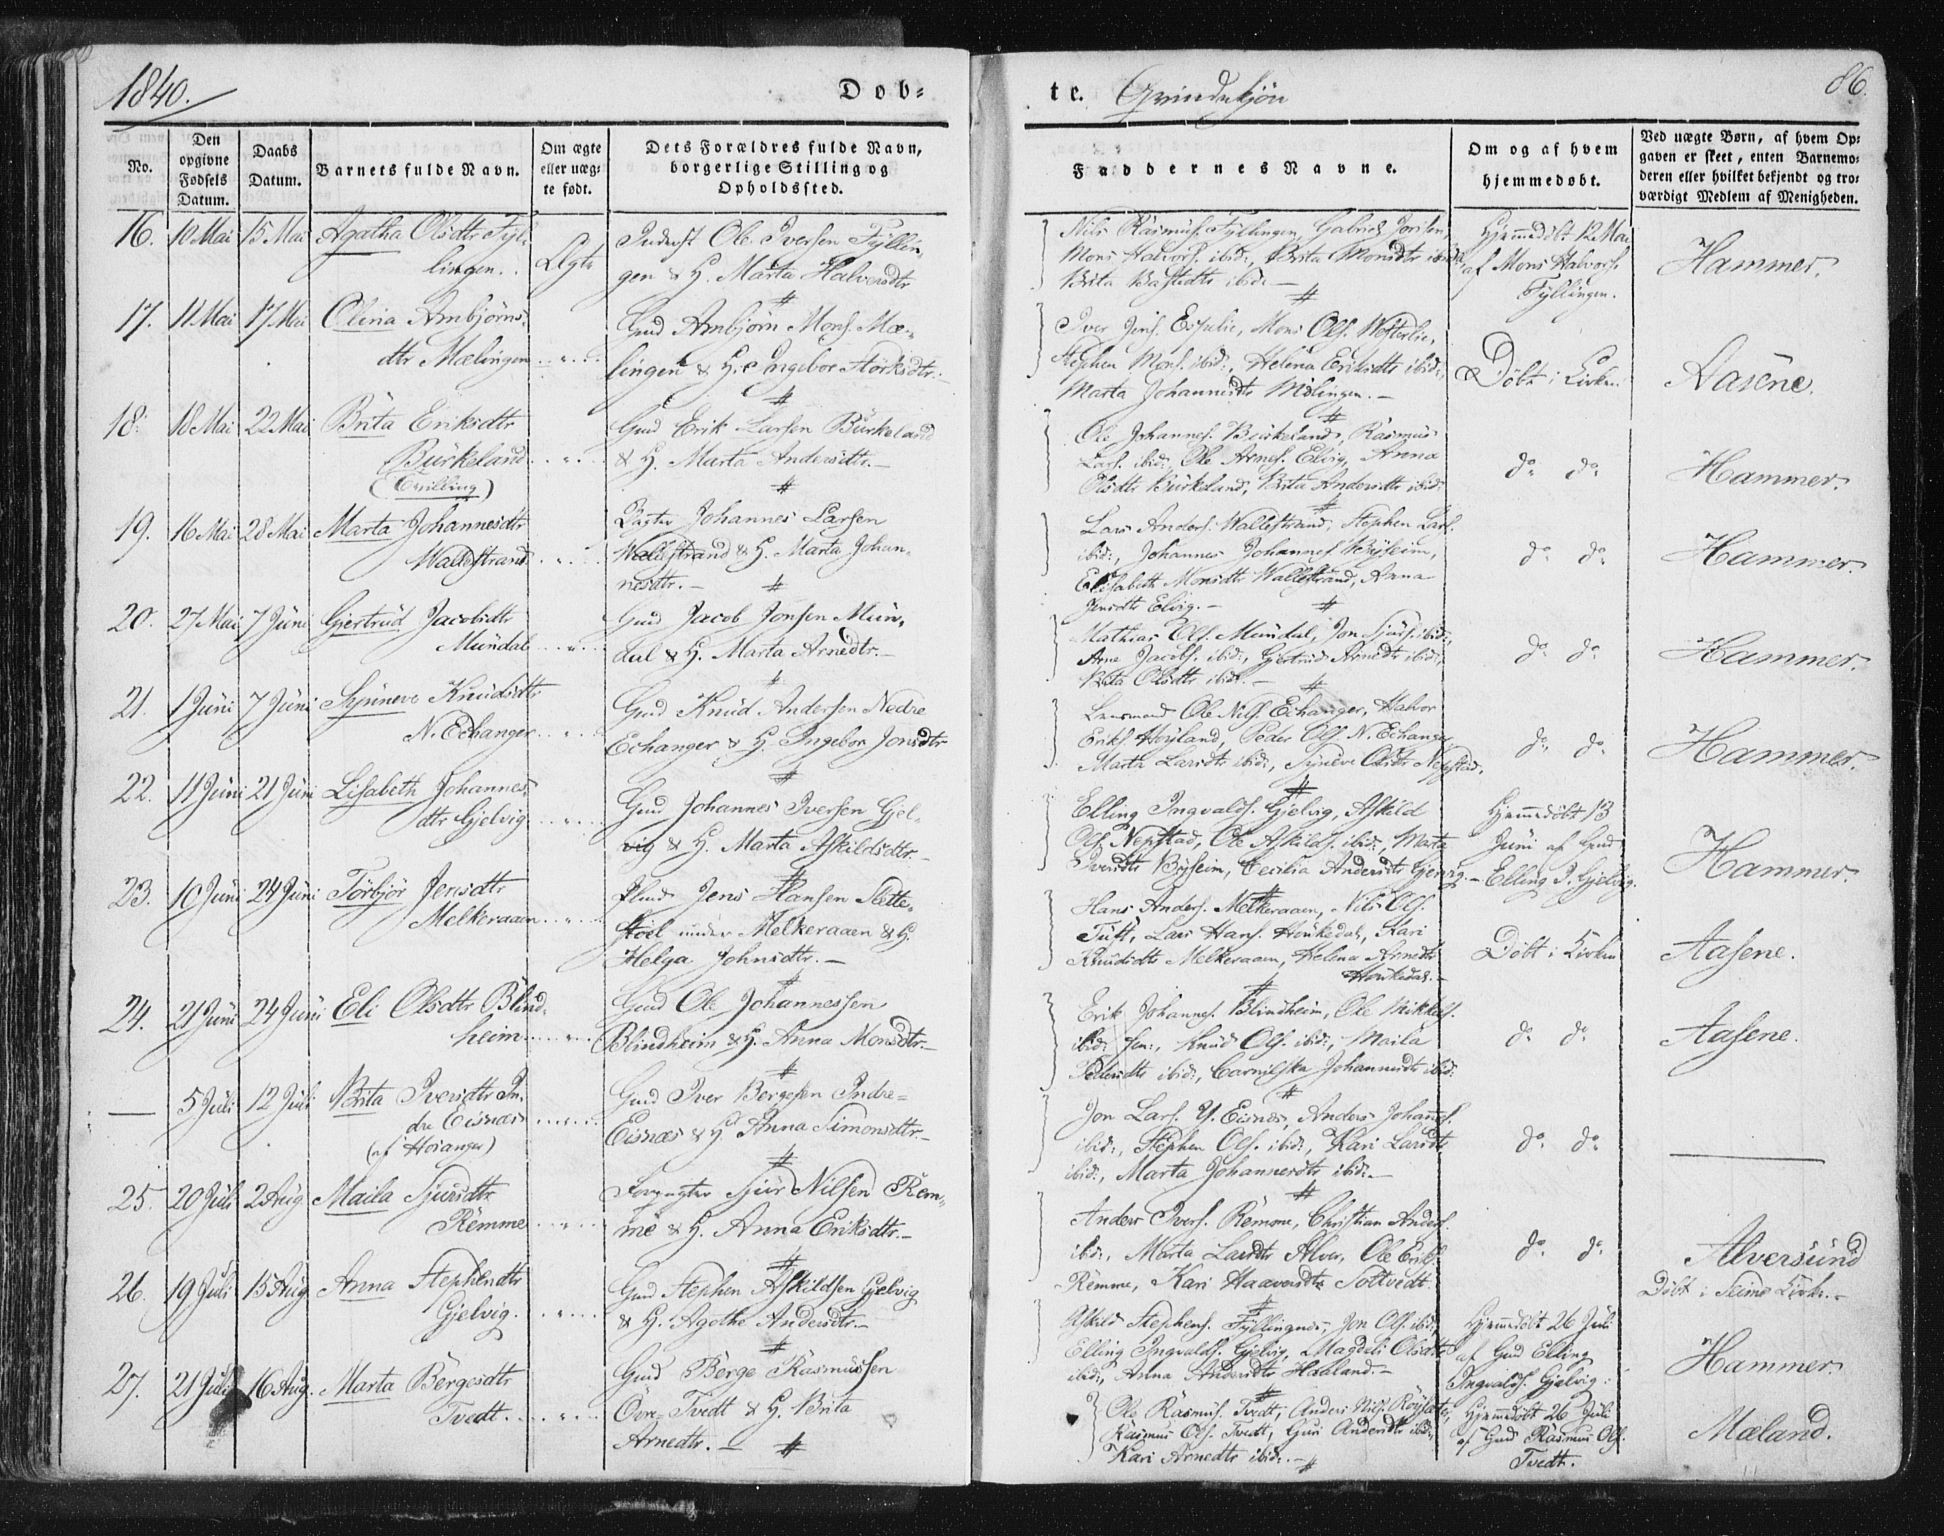 1840.
Døb-
te. Qvindekjøn
86.
No.
Den opgivne Fødsels Datum.
Daabs Datum.
Barnets fulde Navn.
Om ægte eller uægte født.
Dets Forældres fulde Navn, borgerlige Stilling og Opholdssted.
Faddernes Navne.
Om og af hvem hjemmedøbt.
Ved uægte Børn, af hvem Opgaven er skeet, enten Barnemoderen eller hvilket bekjendt og troværdigt Medlem af Menigheden.
16. 10 Mai 15 Mai Agatha Olsdtr Fyl-
lingen. Ægte
Ole Iversen Fyllin-
gen & H. Marta Halvorsdtr
Nils Rasmus. Fyllingen, Gabriel
Mons Halvors. ibid:, Brita Monsdtr ibid:
Brita ibid:
Hjemmedøbt 12 Mai
af Mons Halvors.
Fyllingen.
Hammer.
17. 11 Mai 17 Mai Olina Ambjørns-
dtr Mælingen
Gmd Ambjørn Mons. Mæ-
lingen & H. Ingebor Størksdtr.
Iver Jens. Espelie, Mons Ols. Westerlie,
Stephen Mons. ibid:, Helena Eriksdtr ibid:,
Marta Johannesdtr Mælingen.
Døbt i Kirken
Aasene.
18. 18 Mai 22 Mai Brita Eriksdtr
Burkeland
(Tvilling)
Gmd Erik Larsen Burkeland
& H. Marta Andersdtr.
Ole Johannes. Burkeland, Rasmus
Lars. ibid:, Ole Arnes. Elvig, Anna
Olsdtr Burkeland, Brita Andersdtr ibid:
do do
Hammer.
19. 16 Mai 28 Mai Marta Johannesdtr
Wallestrand
Johannes Larsen
Wallestrand & H. Marta Johan-
nesdtr.
Lars Anders. Wallestrand, Stephen Lars.
ibid:, Johannes Johannes. Byseim,
Elisabeth Monsdtr Wallestrand, Anna
Jensdtr Elvig.
do do
Hammer.
20. 27 Mai 7 Juni Gjertrud Jacobsdtr
Mundal
Gmd Jacob Jonsen Mun-
dal & H. Marta Arnedtr.
Mathias Ols. Mundal, Jon Sjurs. ibid:,
Arne Jacobs. ibid:, Gjertrud Arnedtr ibid:,
Brita Olsdtr ibid:
do do
Hammer.
21. 1 Juni 7 Juni Synneve Knudsdtr
N. Echanger
Gmd Knud Andersen Nedre
Echanger & H. Ingebor Jonsdtr
Lensmand Ole Nils. Echanger, Halvor
Eriks. Høyland, Peder Ols. N. Echanger
Marta Larsdtr ibid:, Syneve Olsdtr Nepstad.
do do
Hammer.
22. 11 Juni 21 Juni Lisabeth Johannes-
dtr Gjelvig
Gmd Johannes Iversen Gjel-
vig & H. Marta Askildsdtr.
Elling Ingvalds. Gjelvig, Askild
Ols. Nepstad, Ole Askilds. ibid:, Marta
Iversdtr Byseim, Cecilia Andersdtr Gjervig.
Hjemmedøbt 13
Juni af Gmd
Elling I. Gjelvig.
Hammer.
23. 10 Juni 24 Juni Torbjør Jensdtr
Melkeraaen
Jens Hansen Slette-
under Melkeraaen & H.
Helga Johnsdtr.
Hans Anders. Melkeraaen, Nils Ols.
Tuft, Lars Hans. Houkedal, Kari
Knudsdtr Melkeraaen, Helena Arnedtr
Houkedal.
Døbt i Kirken
Aasene.
24. 21 Juni 24 Juni Eli Olsdtr Blind-
heim
Gmd Ole Johannessen
Blindheim & H. Anna Monsdtr.
Erik Johannes. Blindheim, Ole Mikkels.
ibid: sen:, Knud Ols. ibid:, Maila
Pedersdtr ibid:, Johannesdtr ibid:
do do
Aasene.
— 5 Juli 12 Juli Brita Iversdtr In-
dre Eisnæs
(af Hosanger)
Gmd Iver Bergesen Indre-
Eisnæs & H. Anna Simonsdtr.
Jon Lars. Y. Eisnæs, Anders Johannes.
ibid:, Stephen Ols. ibid:, Kari Larsdtr
ibid:, Marta Johannesdtr ibid:
do do
25. 20 Juli 2 Aug. Maila Sjursdtr
Remme
Forpagter Sjur Nilsen Rem-
me & H. Anna Eriksdtr.
Anders Ivers. Remme, Christian Anders.
ibid:, Marta Larsdtr Alver, Ole Eriks.
Remme, Kari Haaversdtr Soltvedt
do do
Alversund
Døbt i Seims Kirke.
26. 19 Juli 15 Aug Anna Stephendtr
Gjelvig.
Gmd Stephen Askildsen Gjelvig
& H. Agathe Andersdtr.
Askild Stephens. Fyllingnes, Jon Ols. ibid:,
Elling Ingvalds. Gjelvig, Magdeli Olsdtr
ibid:, Anna Andersdtr Haaland.
Hjemmedøbt 26 Juli
af Gmd Elling
Ingvalds. Gjelvig.
Hammer.
27. 21 Juli 16 Aug. Marta Bergesdtr
Tvedt.
Gmd Berge Rasmussen
Övre-Tvedt & H. Brita
Arnedtr.
Ole Rasmus. Tvedt, Anders Nils.
Rasmus Ols. Tvedt, Guri Andersdtr ibid:,
Kari Arnedtr ibid:
Hjemmedøbt 26 Juli
af Gmd Rasmus Ols.
Tvedt.
Mæland.